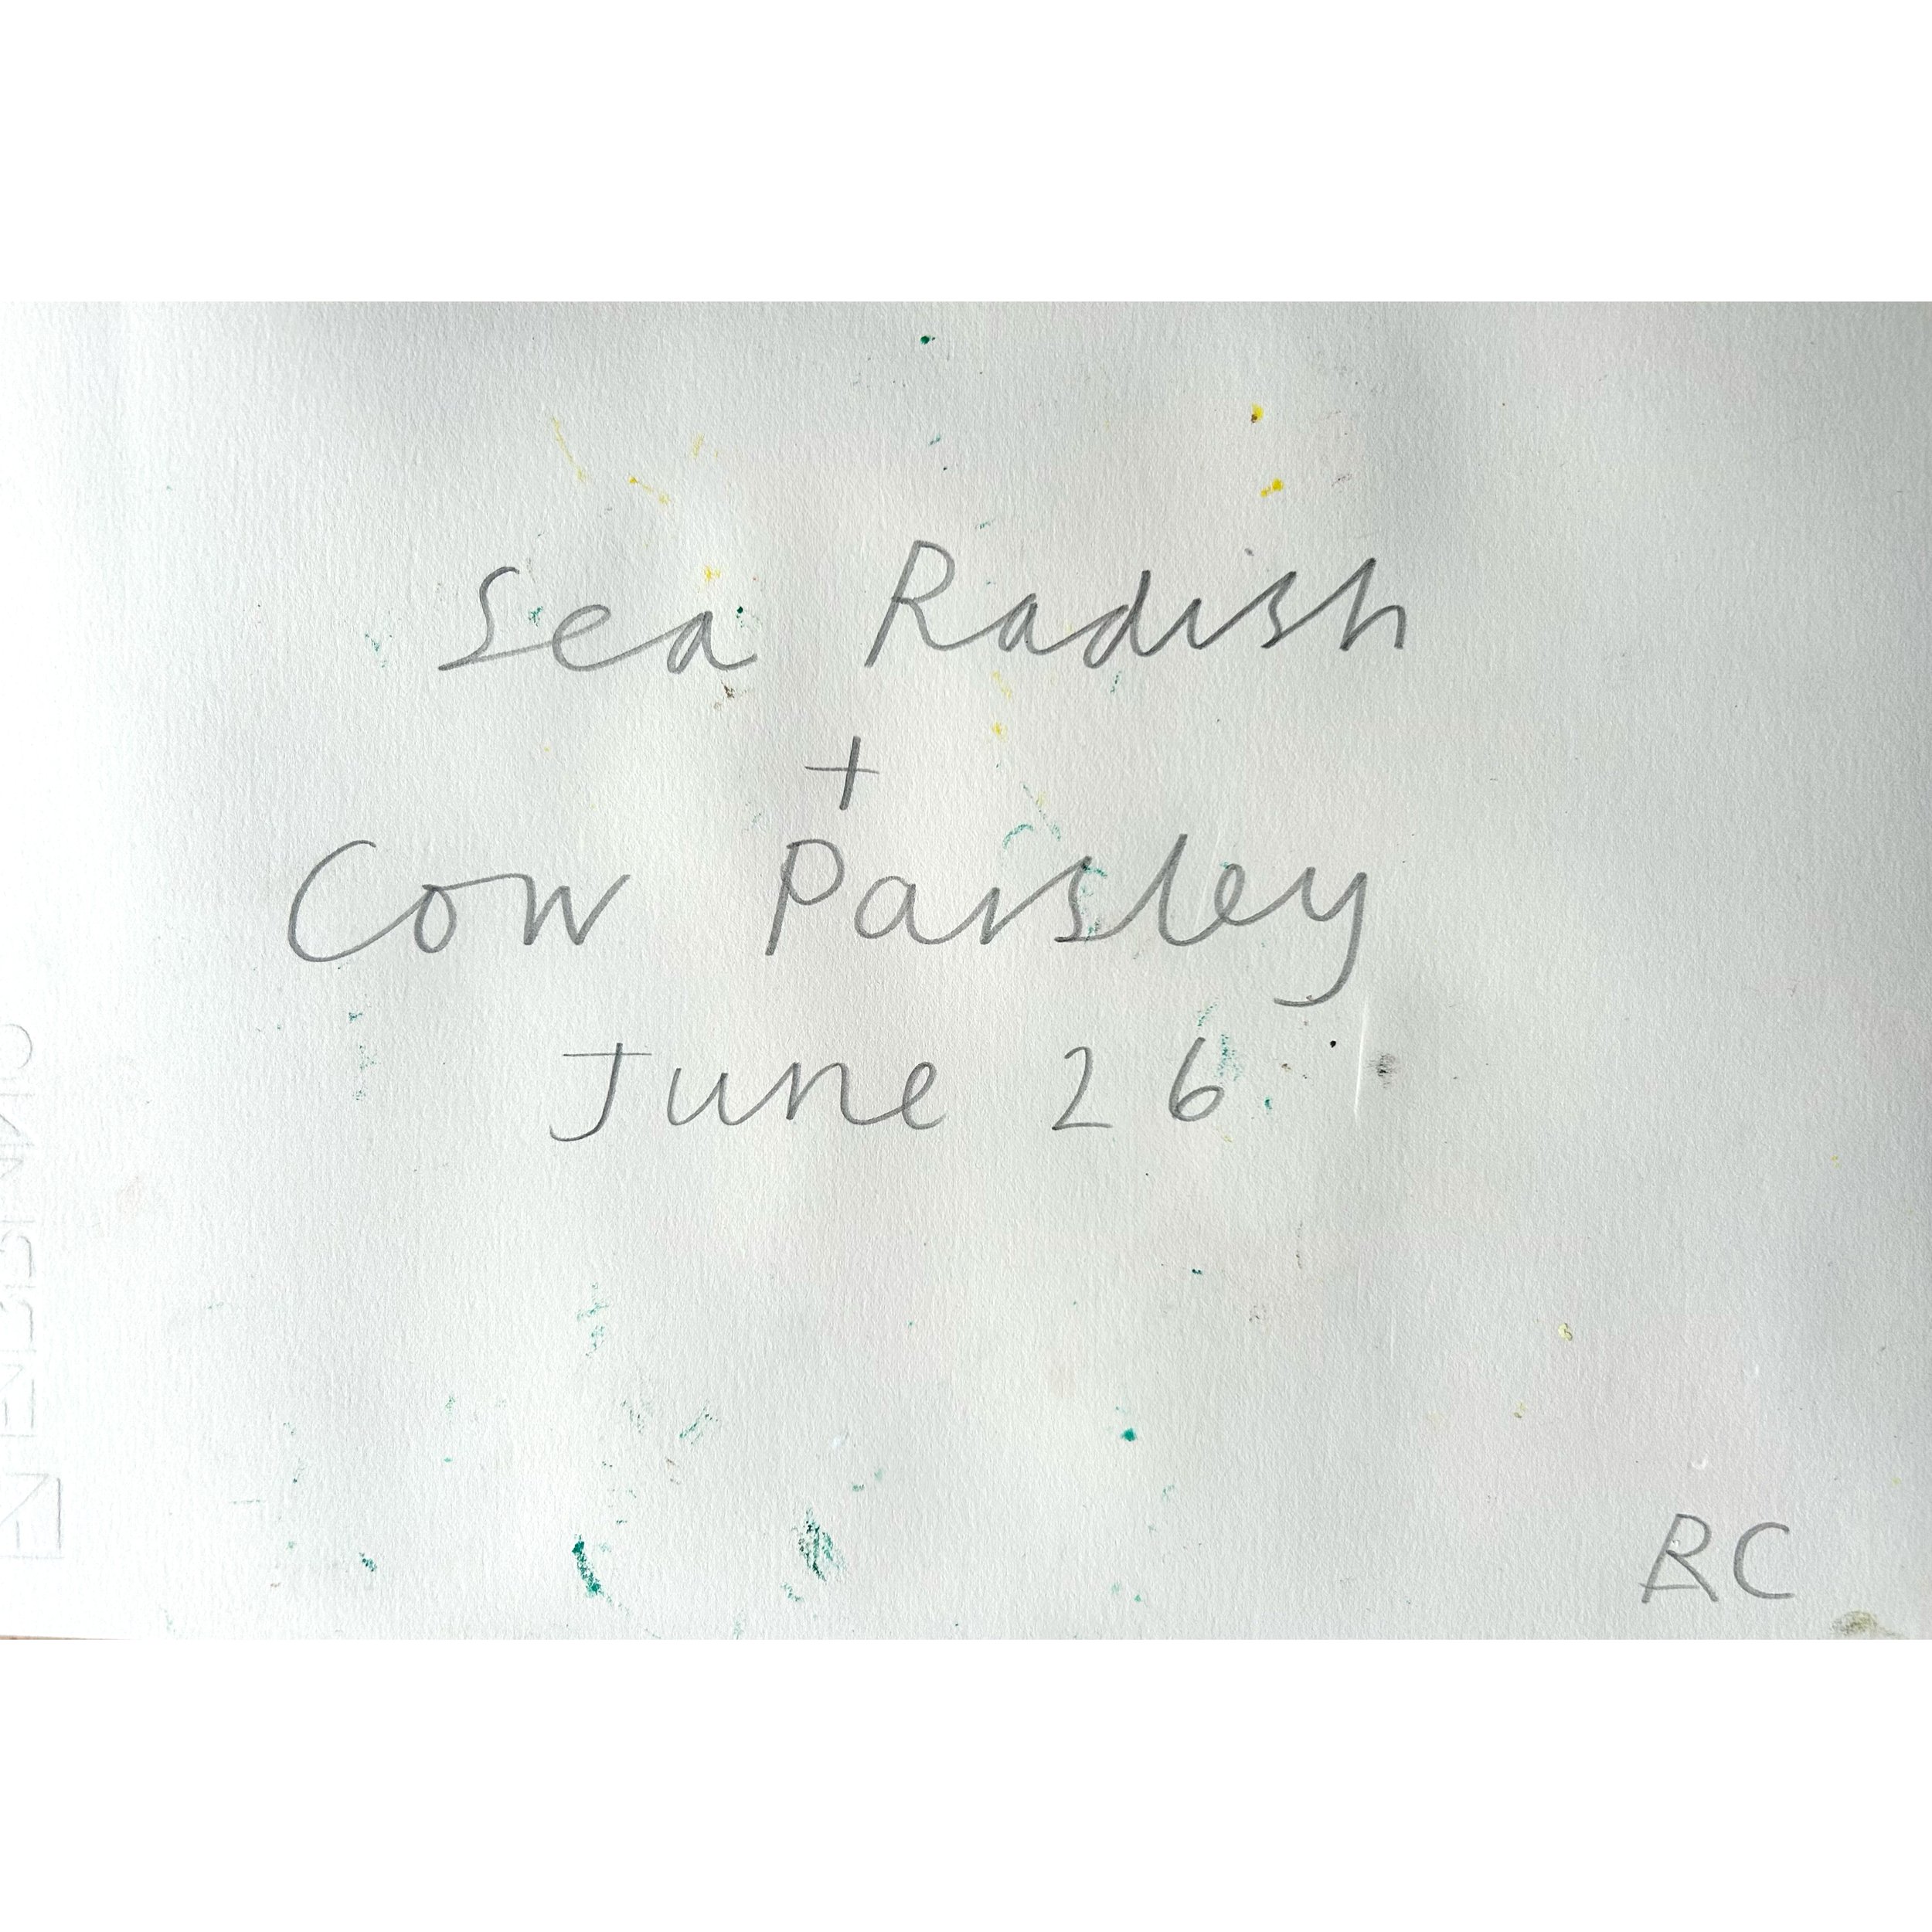 Sea Radish
+
Cow Parsley
June 26
RC